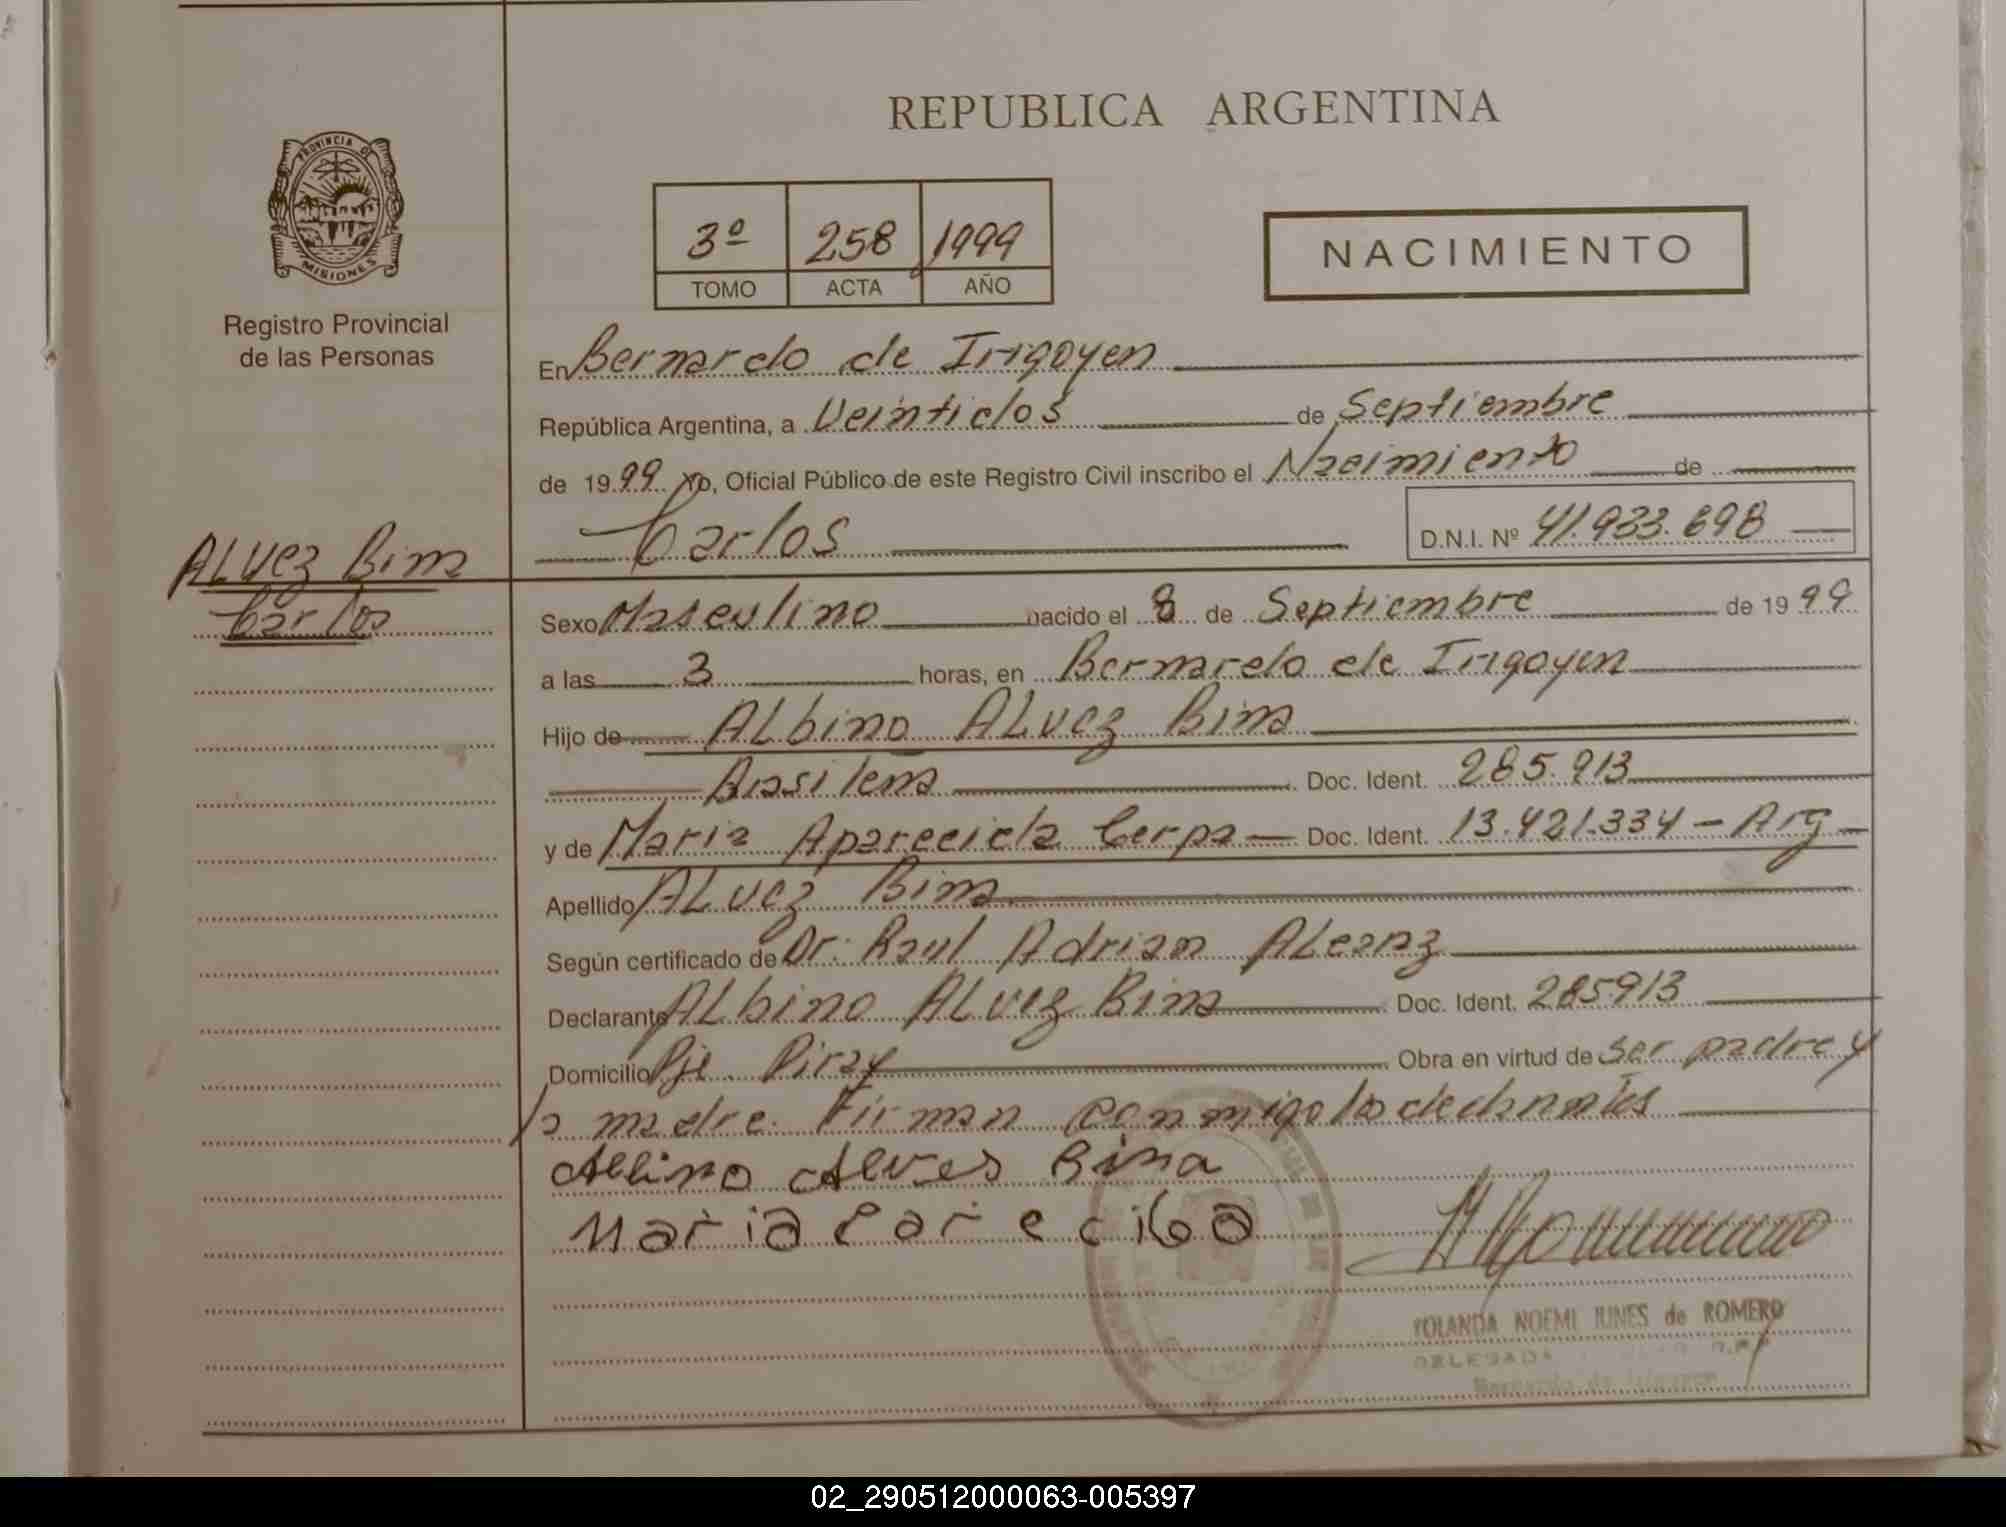 REPUBLICA ARGENTINA
PROVINCIA DE
MISIONES
Registro Provincial
de las Personas
3º 258 1999
TOMO ACTA AÑO
NACIMIENTO
En Bernardo de Irigoyen
República Argentina, a Veintidos de Septiembre
de 1999 yo, Oficial Público de este Registro Civil inscribo el Nacimiento de
Carlos
D.N.I. Nº 41.933.698
ALVez Bima
Carlos
Sexo Masculino nacido el 8 de Septiembre de 1999
a las 3 horas, en Bernardo de Irigoyen
Hijo de ALbino ALvez Bima
Brasileña Doc. Ident. 285.913
y de Maria Aparecida Cerpa Doc. Ident. 13.421.334 - Arg
Apellido ALvez Bima
Según certificado de Dr. Raul Adrian ALcaraz
Declarante ALbino ALvez Bima Doc. Ident. 285913
Domicilio Pje. Piray Obra en virtud de ser padre y
la madre. Firman conmigo los declarantes
Albino Alves Bima
Maria Parecida
YOLANDA NOEMI IUNES de ROMERO
DELEGADA
Bernardo de Irigoyen
02_290512000063-005397